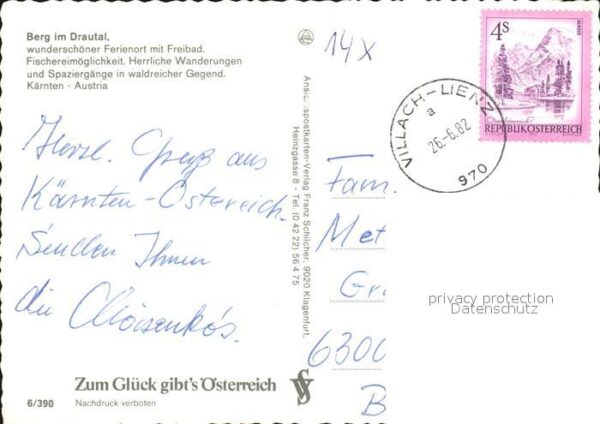 Berg im Drautal,
wunderschöner Ferienort mit Freibad.
Fischereimöglichkeit. Herrliche Wanderungen
und Spaziergänge in waldreicher Gegend.
Kärnten - Austria
14x
4s
ALMSEE
REPUBLIK ÖSTERREICH
VILLACH-LIENZ
a
26.-6.82
970
Herzl. Grüße aus
Kärnten-Österreich.
Senden Ihnen
die
Ansichtspostkarten-Verlag Franz Schilcher, 9020 Klagenfurt,
Heinzgasse 8 - Tel. (0 42 22) 56 4 75
Fam.
Met
Gr
6300
B
privacy protection
Datenschutz
Zum Glück gibt's Österreich
6/390 Nachdruck verboten